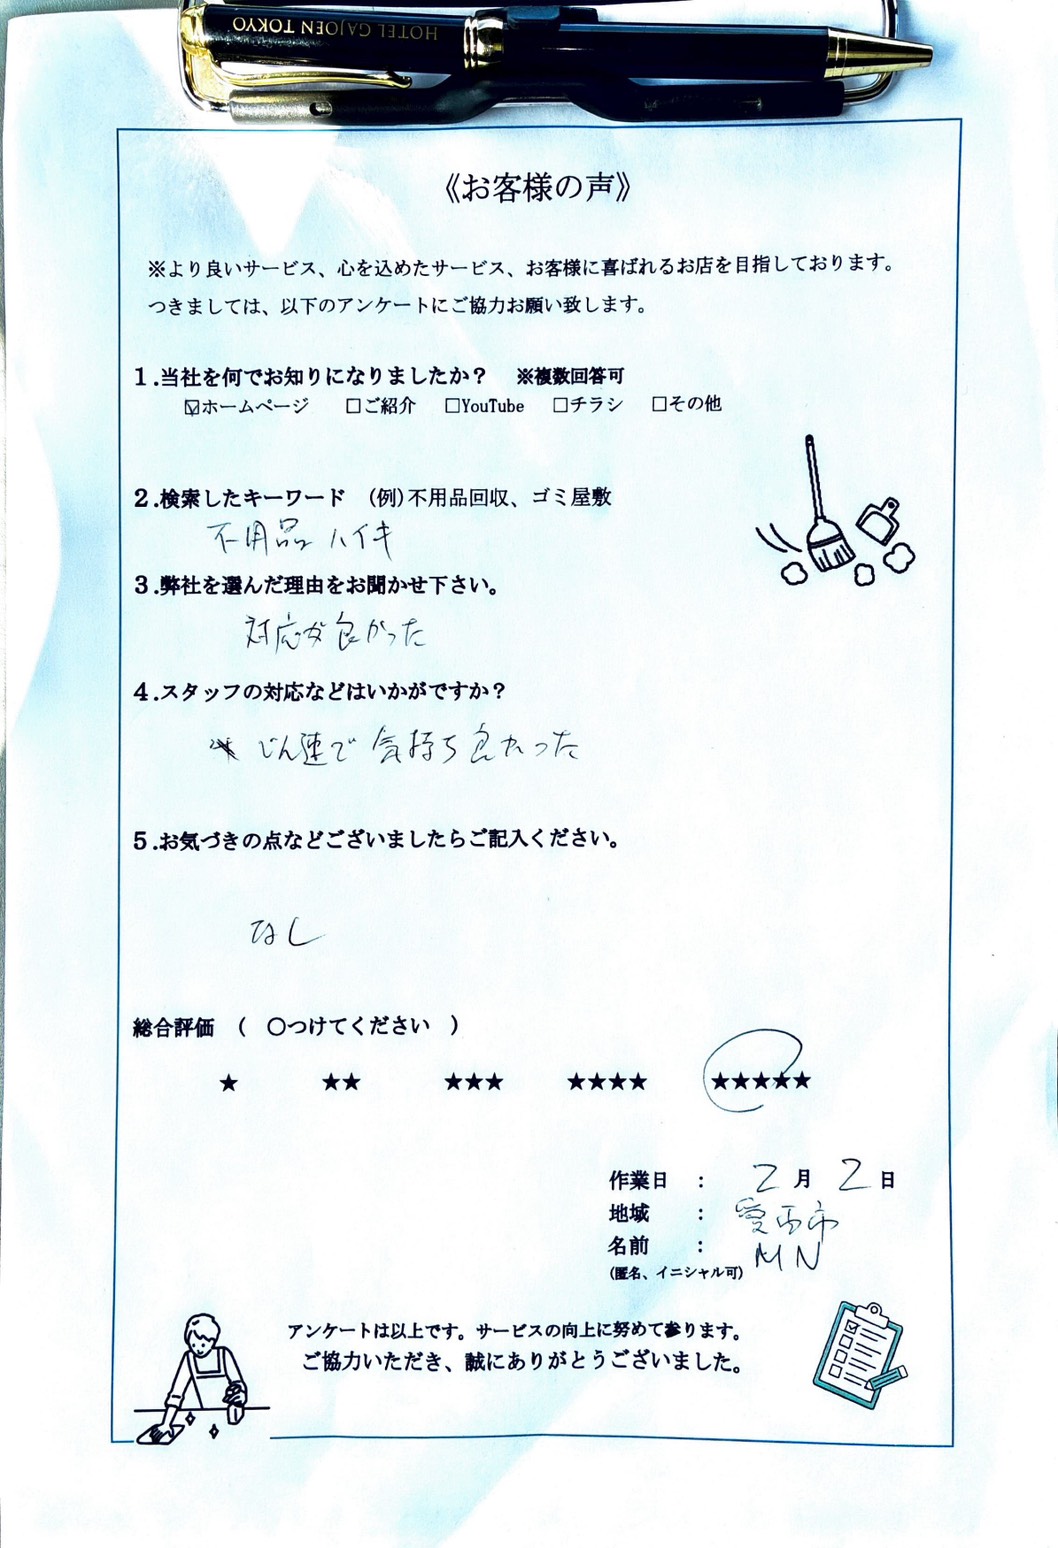 HOTEL GAJOEN TOKYO
《お客様の声》
※より良いサービス、心を込めたサービス、お客様に喜ばれるお店を目指しております。
つきましては、以下のアンケートにご協力お願い致します。
1.当社を何でお知りになりましたか？ ※複数回答可
☑ホームページ □ご紹介 □YouTube □チラシ □その他
2.検索したキーワード (例)不用品回収、ゴミ屋敷
不用品ハイキ
3.弊社を選んだ理由をお聞かせ下さい。
対応が良かった
4.スタッフの対応などはいかがですか？
じん速で気持ち良かった
5.お気づきの点などございましたらご記入ください。
なし
総合評価 ( 〇つけてください )
★ ★★ ★★★ ★★★★ ★★★★★
作業日 : 2月2日
地域 : 愛西市
名前 : MN
(匿名、イニシャル可)
アンケートは以上です。サービスの向上に努めて参ります。
ご協力いただき、誠にありがとうございました。